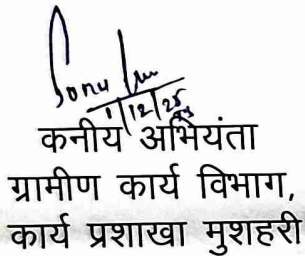 Sonu
1/12/25
कनीय अभियंता
ग्रामीण कार्य विभाग,
कार्य प्रशाखा मुशहरी